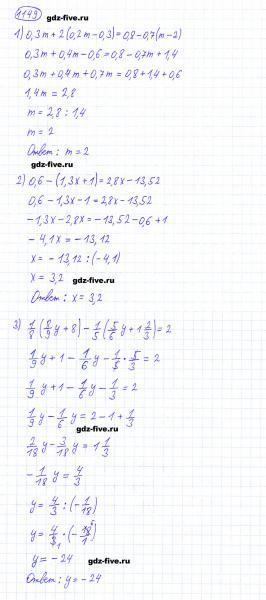 1149
gdz-five.ru
1) 0,3m + 2(0,2m - 0,3) = 0,8 - 0,7(m - 2)
0,3m + 0,4m - 0,6 = 0,8 - 0,7m + 1,4
0,3m + 0,4m + 0,7m = 0,8 + 1,4 + 0,6
1,4m = 2,8
m = 2,8 : 1,4
m = 2
Ответ: m = 2
gdz-five.ru
2) 0,6 - (1,3x + 1) = 2,8x - 13,52
0,6 - 1,3x - 1 = 2,8x - 13,52
-1,3x - 2,8x = -13,52 - 0,6 + 1
-4,1x = -13,12
x = -13,12 : (-4,1)
x = 3,2 gdz-five.ru
Ответ: x = 3,2
3) 1/8 (8/9 y + 8) - 1/5 (5/6 y + 1 2/3) = 2
1/9 y + 1 - 1/6 y - 1/5 · 5/3 = 2
1/9 y + 1 - 1/6 y - 1/3 = 2
1/9 y - 1/6 y = 2 - 1 + 1/3
gdz-five.ru
2/18 y - 3/18 y = 1 1/3
-1/18 y = 4/3
y = 4/3 : (-1/18)
y = 4/3 · (-18/1)
y = -24 gdz-five.ru
Ответ: y = -24